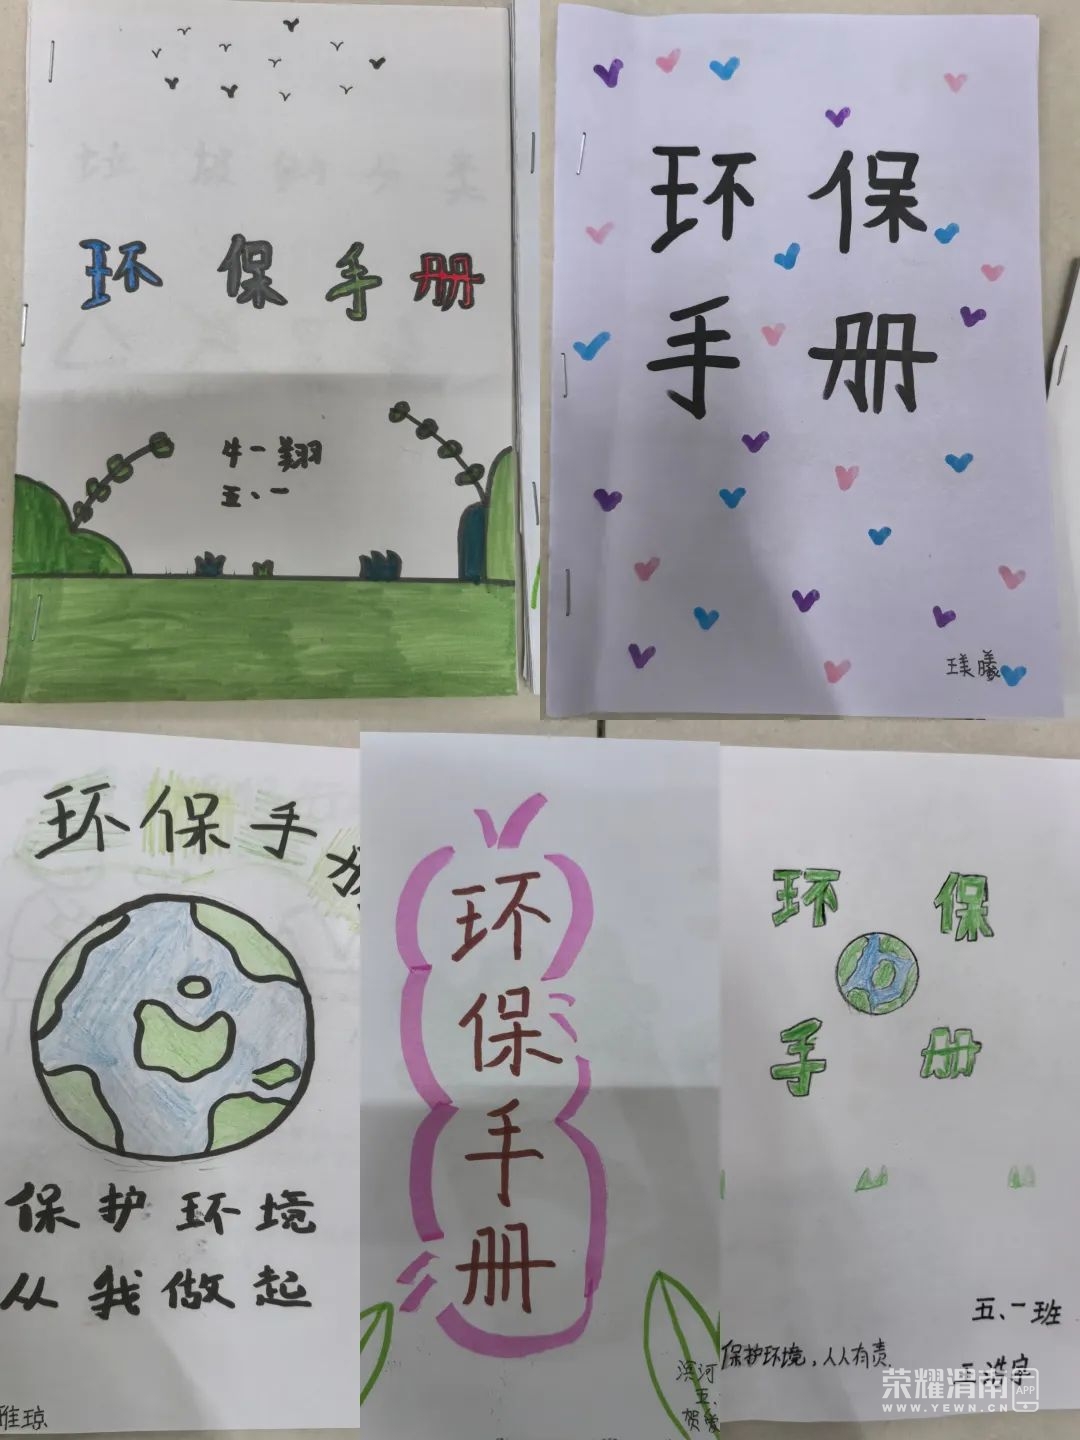 环保手册
牛一翔
五、一
环保
手册
环保手
保护环境
从我做起
雅琼
环
保
手
册
滨河
五、
贺爱
环保
手册
五、一班
保护环境，人人有责。
王浩宇
荣耀渭南APP
WWW.YEWN.CN